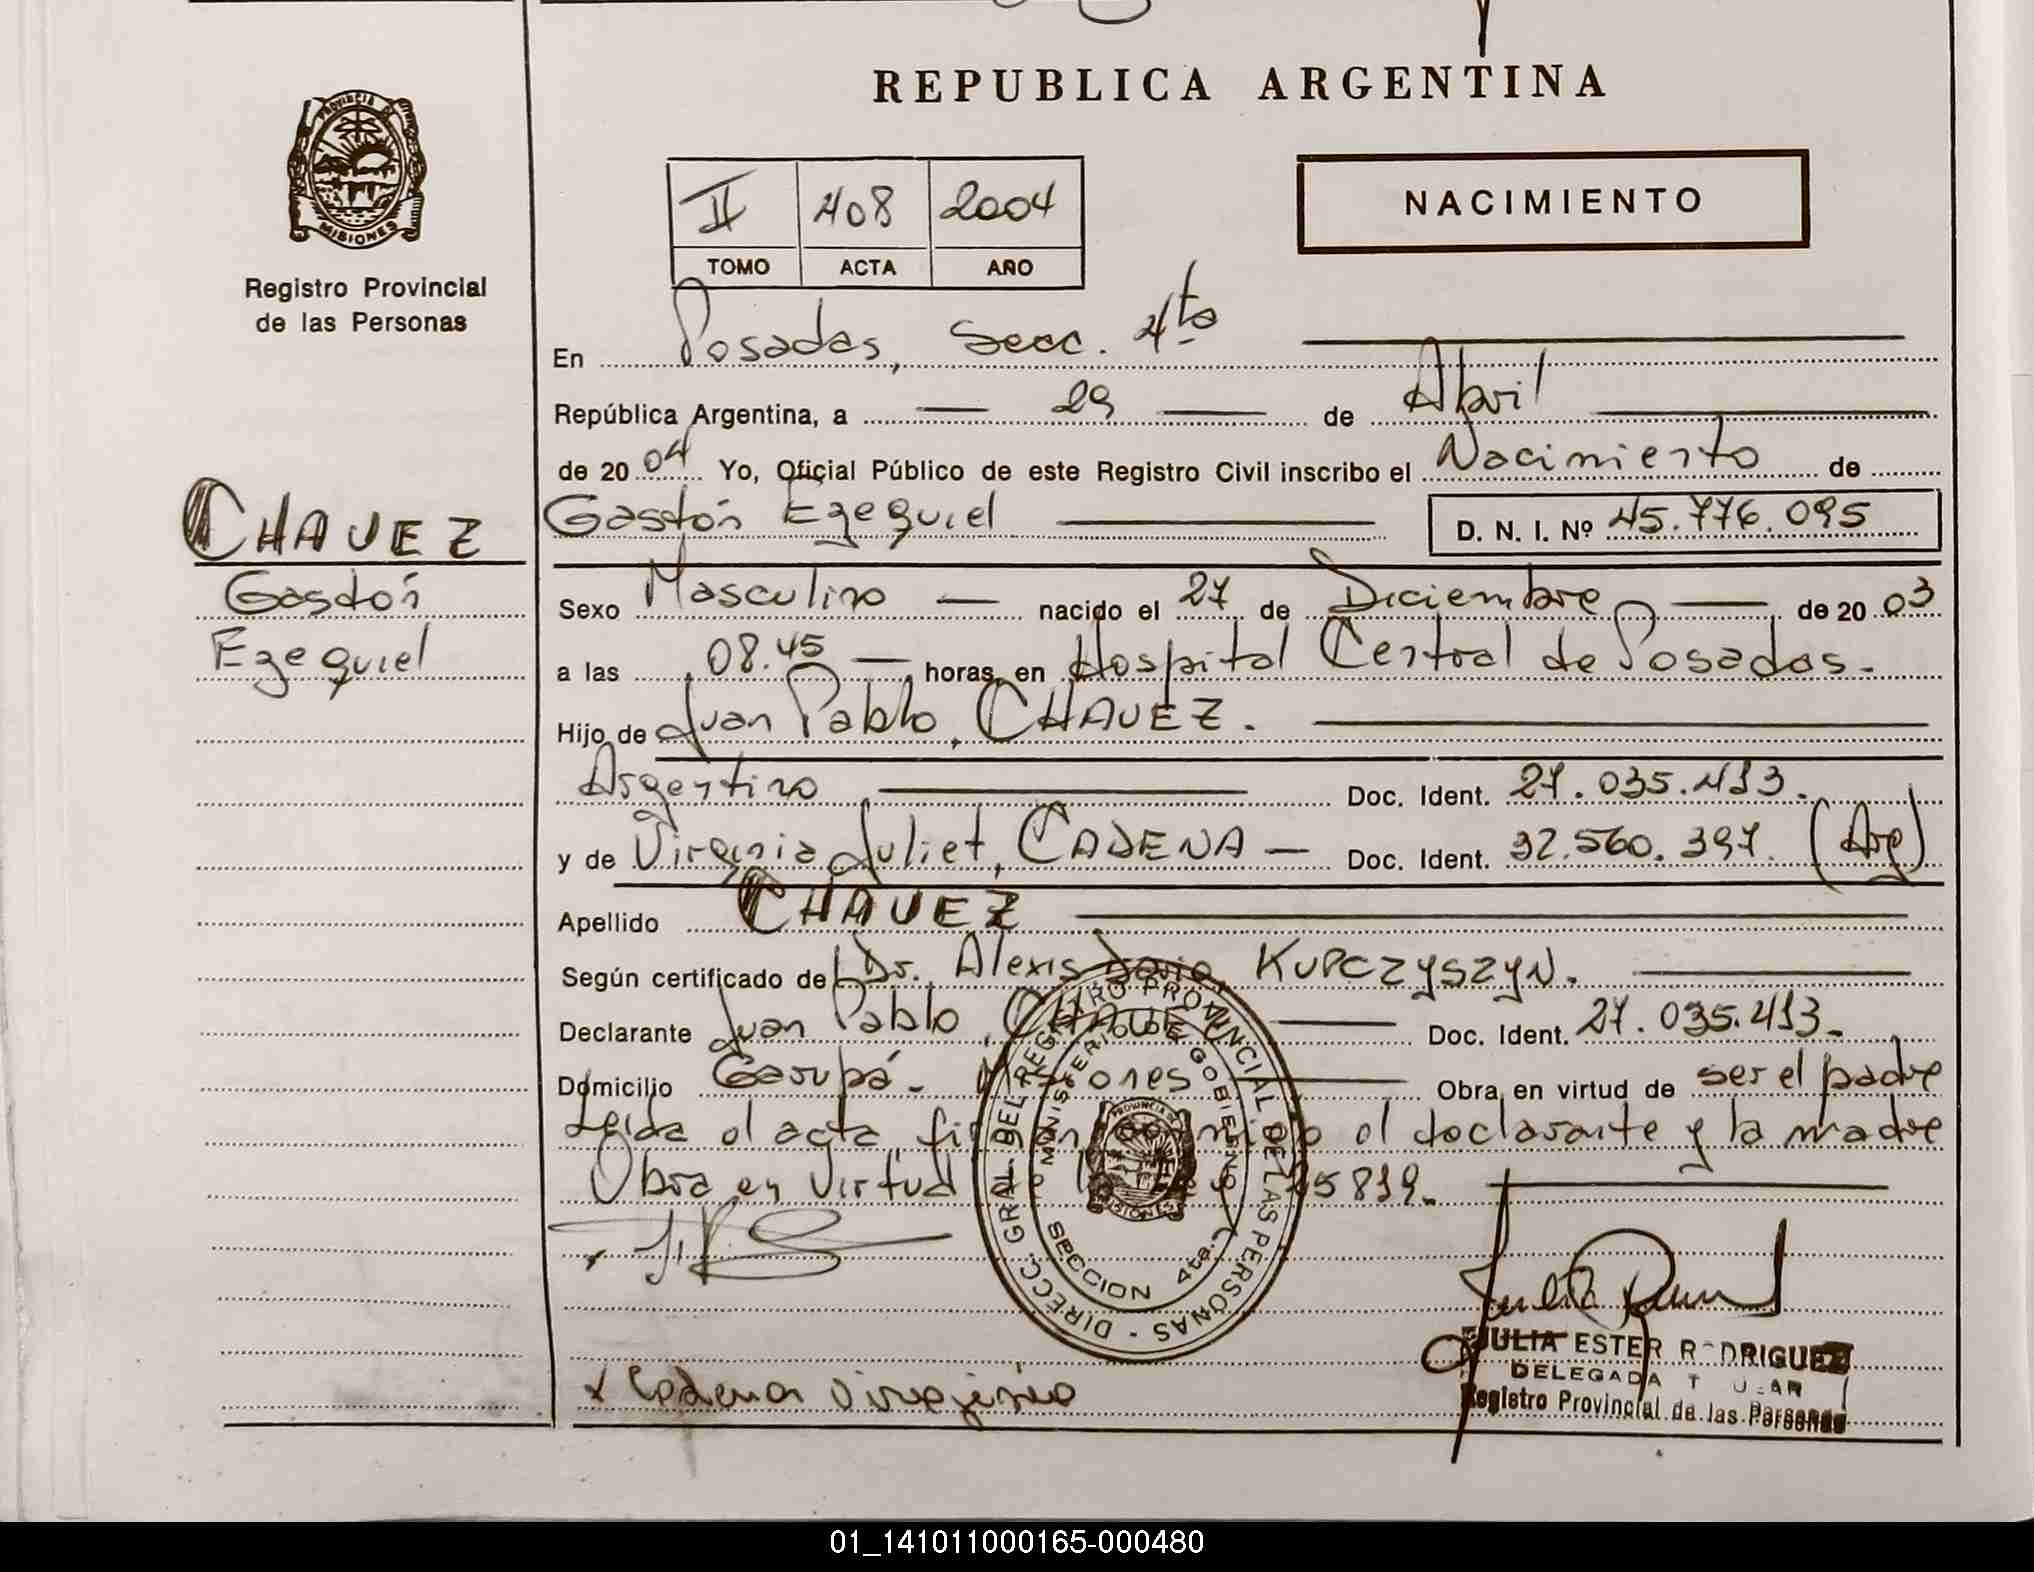 REPUBLICA ARGENTINA
PROVINCIA DE
MISIONES
Registro Provincial
de las Personas
NACIMIENTO
II 408 2004
TOMO ACTA AÑO
En Posadas, Secc. 4ta
República Argentina, a 29 de Abril
de 2004 Yo, Oficial Público de este Registro Civil inscribo el Nacimiento de
Gastón Ezequiel D. N. I. Nº 45.776.095
CHAVEZ
Gastón
Ezequiel
Sexo Masculino nacido el 27 de Diciembre de 2003
a las 08.45 horas, en Hospital Central de Posadas.
Hijo de Juan Pablo, CHAVEZ.
Argentino Doc. Ident. 27.035.413.
y de Virginia Juliet, CADENA Doc. Ident. 32.560.397. (Arg)
Apellido CHAVEZ
Según certificado de Dr. Alexis KUPCZYSZYN.
Declarante Juan Pablo, CHAVEZ Doc. Ident. 27.035.413.
Domicilio Garupá - Misiones Obra en virtud de ser el padre
Leida el acta conmigo el declarante y la madre
Obra en Virtud 25819.
DIRECC. GRAL DEL REGISTRO PROVINCIAL DE LAS PERSONAS
MINISTERIO DE GOBIERNO
SECCION 4ta.
Cadena Virginia
JULIA ESTER RODRIGUEZ
DELEGADA TITULAR
Registro Provincial de las Personas
01_141011000165-000480